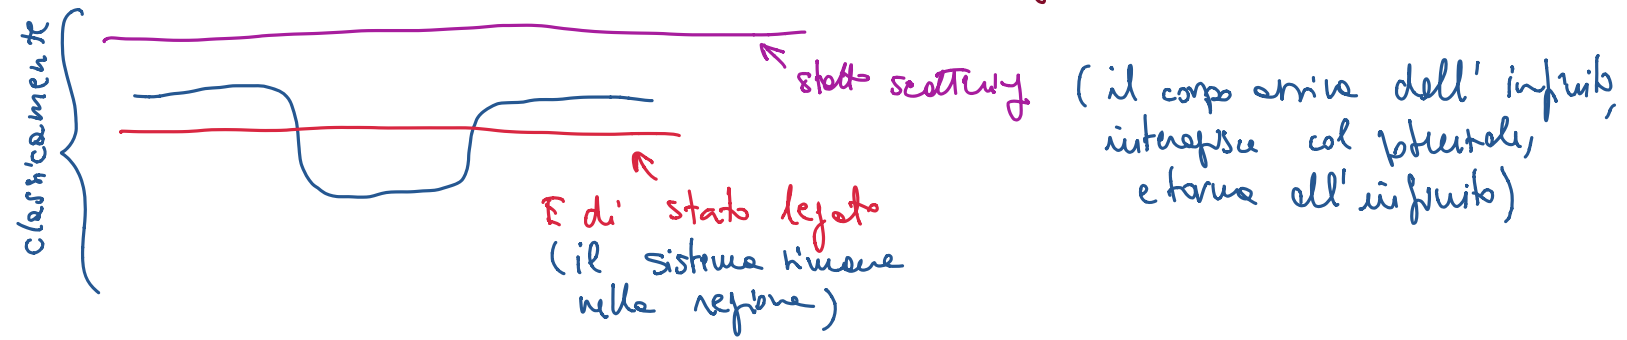 classicamente
stato scattering
(il corpo arriva dall'infinito,
interagisce col potenziale,
e torna all'infinito)
E di stato legato
(il sistema rimane
nella regione)